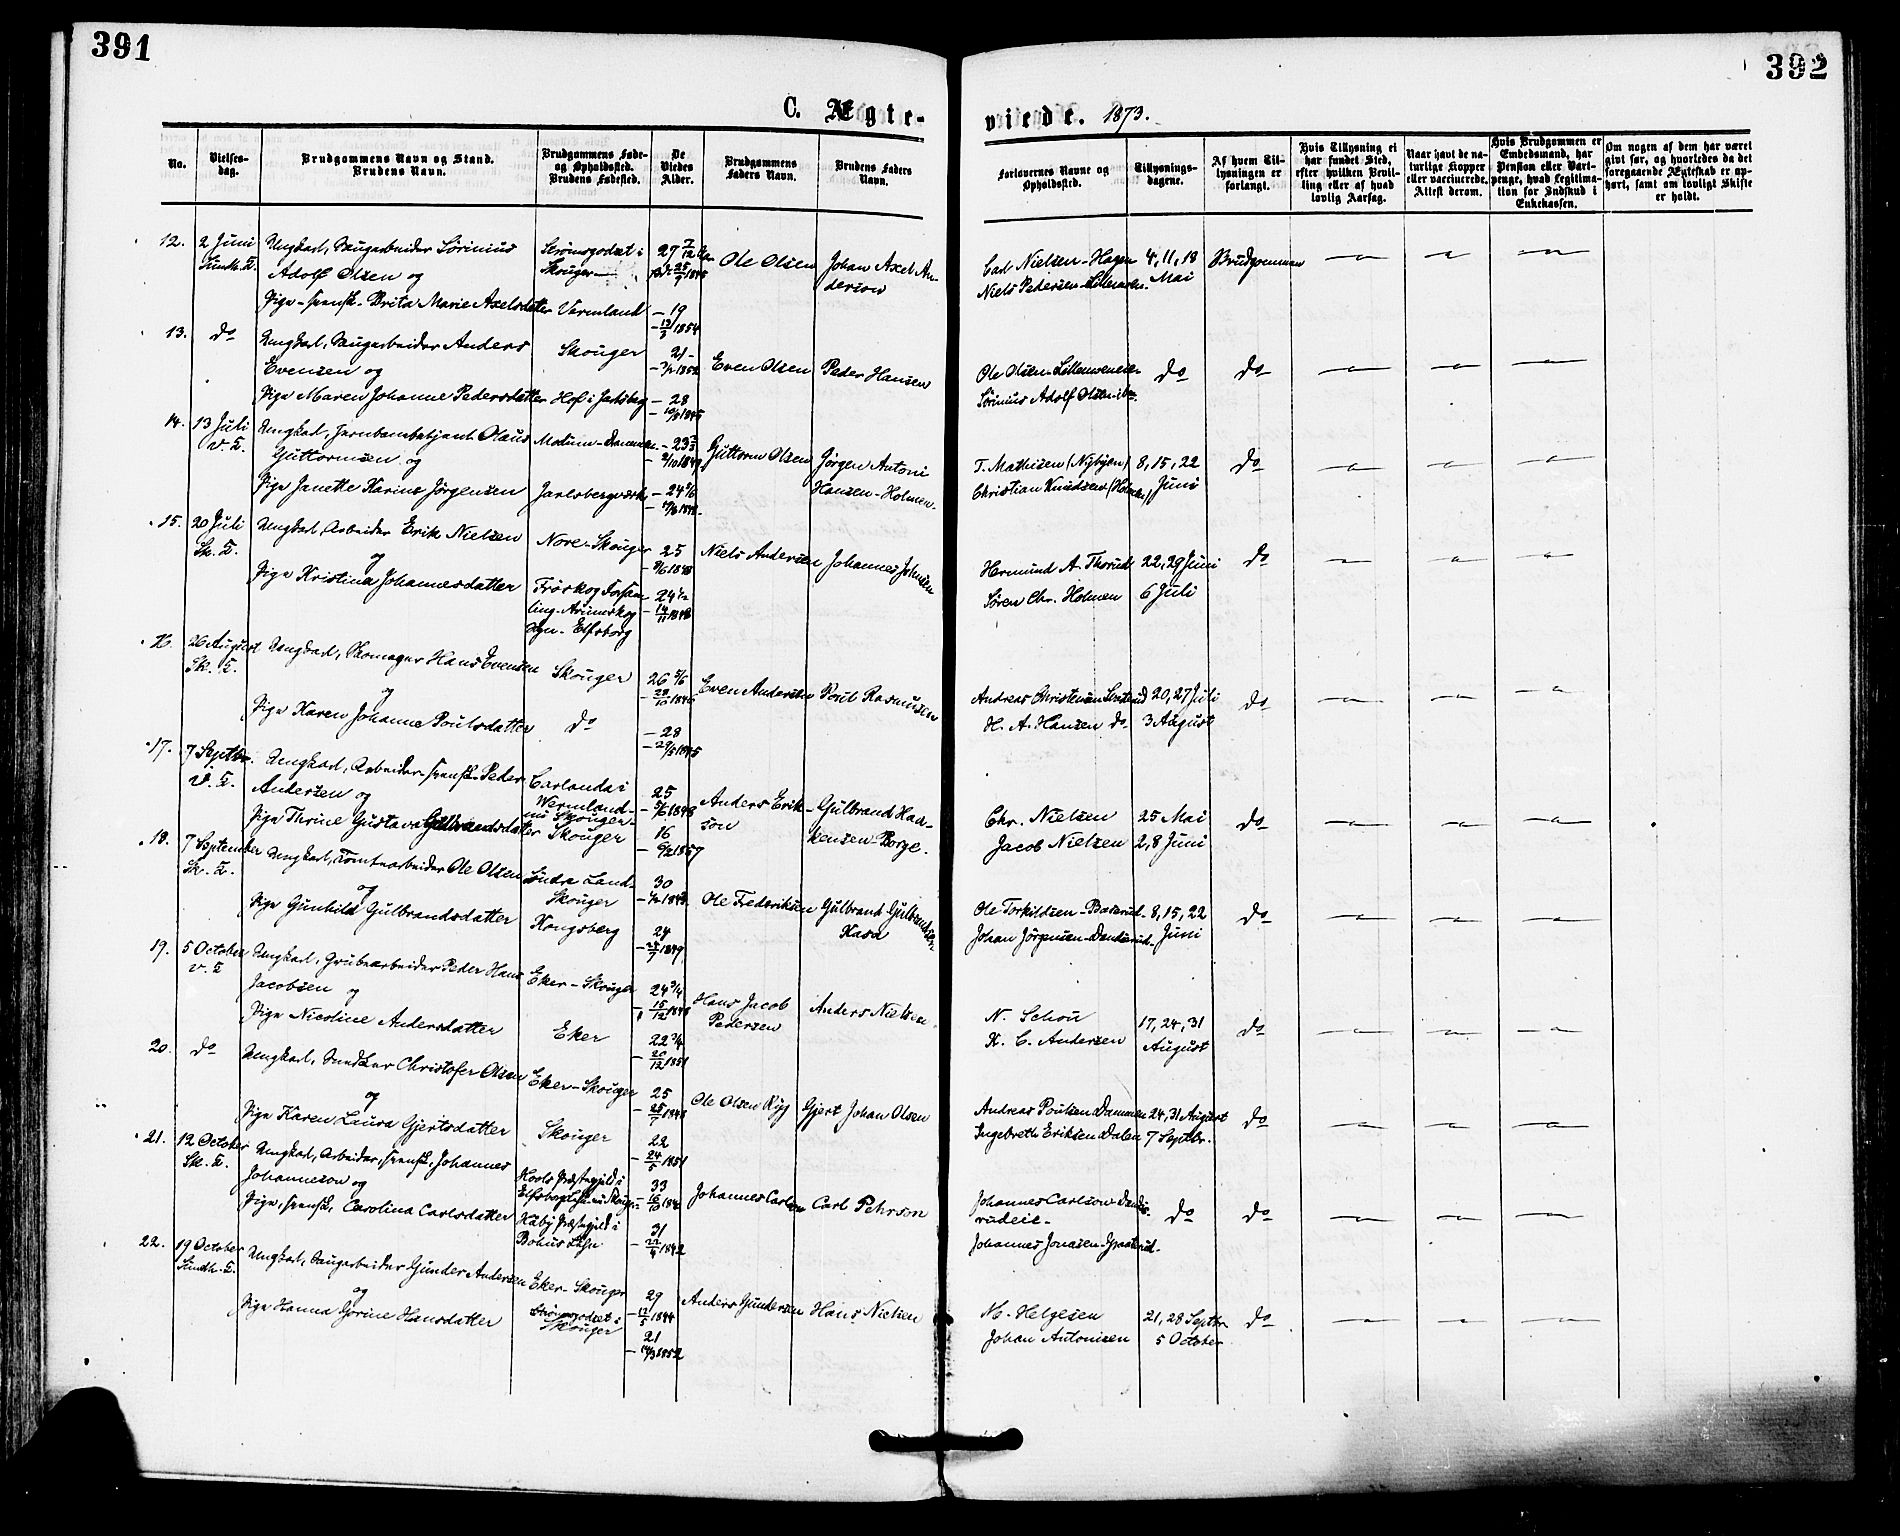 391
392
C. Ægte-
viede. 1873.
No.
Vielses-
dag.
Brudgommens Navn og Stand.
Brudens Navn.
Brudgommens Føde-
og Opholdssted.
Brudens Fødested.
De
Viedes
Alder.
Brudgommens
Faders Navn.
Brudens Faders
Navn.
Forlovernes Navne og
Opholdssted.
Tillysnings-
dagene.
Af hvem Til-
lysningen er
forlangt.
Hvis Tillysning ei
har fundet Sted,
efter hvilken Bevil-
ling eller af hvad
lovlig Aarsag.
Naar havt de na-
turlige Kopper
eller vaccinerede.
Attest derom.
Hvis Brudgommen er
Embedsmand, har
Pension eller Vart-
penge, hvad Legitima-
tion for Indskud i
Enkekassen.
Om nogen af dem har været
givt før, og hvorledes da det
foregaaende Ægteskab er op-
hørt, samt om lovligt Skifte
er holdt.
12. 2 Juni Ungkarl, Saugarbeider Sørinius
Adolf Olsen og
Pige - svensk - Brita Marie Axelsdatter
Strømsgodset i
Skouger
Vermland
27 7/12
19
Ole Olsen
Johan Axel An-
derson
Carl Nielsen - Hagen
Niels Pedersen
4, 11, 18
Mai
Brudgommen
13. do Ungkarl, Saugarbeider Anders
Evensen og
Pige Maren Johanne Pedersdatter
Skouger
Hof i Jarlsberg
21
28
Even Olsen
Peder Hansen
Ole Olsen
Sørinius Adolf Olsen
do
do
14. 13 Juli
V. K.
Ungkarl, Jernbanebetjent Olaus
Guttormsen og
Pige Janette Karine Jørgensen
Modum - Drammen
Jarlsbergværk
Guttorm Olsen
Jørgen Antoni
Hansen - Holmen
T. Mathisen (Nybyen)
Christian Knudsen (Holmen)
8, 15, 22
Juni
do
15. 20 Juli
Sk. K.
Ungkarl, Arbeider Erik Nielsen
og
Pige Kristina Johannesdatter
Nore - Skouger
25
24 1/2
Elfsborg
Niels Andersen
Johannes Johnsen
Hermund A. Thorud
Søren Chr. Holmen
22, 29 Juni
6 Juli
do
16. 26 August
Sk. K.
Ungkarl, Skomager Hans Evensen
og
Pige Karen Johanne Poulsdatter
Skouger
do
26 5/6
28
Even Andersen
Poul Rasmusen
Andreas Christensen
H. A. Hansen do
20, 27 Juli
3 August
do
17. 7 Septbr.
V. K.
Ungkarl, Arbeider - svensk - Peder
Andersen og
Pige Thrine Gustava Gulbrandsdatter
Carlanda i
Wermland -
nu Skouger -
Skouger
25
16
Anders Erik-
son
Gulbrand Haa-
kensen - Borge.
Chr. Nielsen
Jacob Nielsen
25 Mai
2, 8 Juni
do
18. 7 September
Sk. K.
Ungkarl, Tomtearbeider Ole Olsen
og
Pige Gunhild Gulbrandsdatter
Søndre Land -
Skouger
Kongsberg
30
24
Ole Frederiksen
Gulbrand Gulbrandsen
Kasa
Ole Torkildsen
Johan Jørgensen
8, 15, 22
Juni
do
19. 5 October
V. K.
Ungkarl, Grubearbeider Peder Hans
Jacobsen og
Pige Nicoline Andersdatter
Eker - Skouger
Eker
24 3/4
22 3/4
Hans Jacob
Pedersen
Anders Nielsen
N. Schou
K. C. Andersen
17, 24, 31
August
do
20. do Ungkarl, Snedker Christofer Olsen
og
Pige Karen Laura Gjertsdatter
Eker - Skouger
Skouger
25
22
Ole Olsen Ryg
Gjert Johan Olsen
Andreas Poulsen Dammen
Ingebreth Eriksen Dalen
24, 31 August
7 Septbr.
do
21. 12 October
Sk. K.
Ungkarl, Arbeider, svensk, Johannes
Johanneson og
Pige, svensk, Carolina Carlsdatter
Præstegjeld i
Præstegjeld i
Bohus Lehn
33
31
Johannes Carlson
Carl Pehrson
Johannes Carlson
Johannes Jonasen
do
do
22. 19 October
Ungkarl, Saugarbeider Gunder Andersen
og
Pige Hanna Gorine Hansdatter
Eker - Skouger
Strømsgodset i
Skouger
29
21
Anders Gundersen
Hans Nielsen
M. Helgesen
Johan Antonisen
21, 28 Septbr
5 October
do